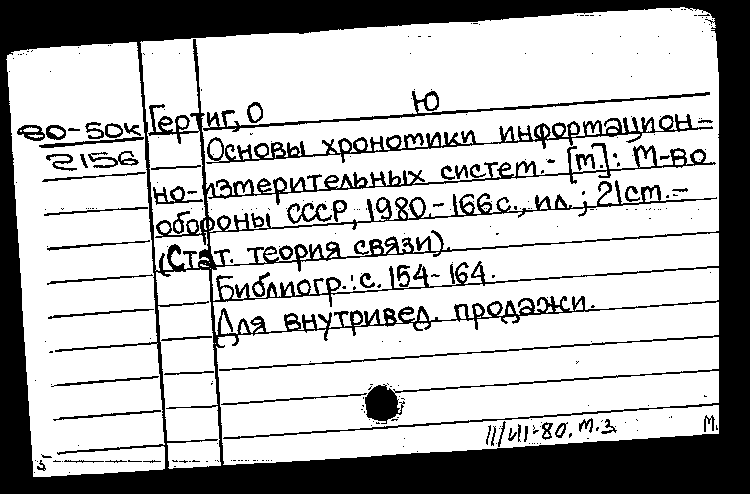 Ю
80-50к Гертиг, О
2156 Основы хронотики информацион-
но-измерительных систем.- [м]: М-во
обороны СССР, 1980.-166с., ил.; 21см.-
(Стат. теория связи).
Библиогр.: с. 154-164.
Для внутривед. продажи.
М.
5